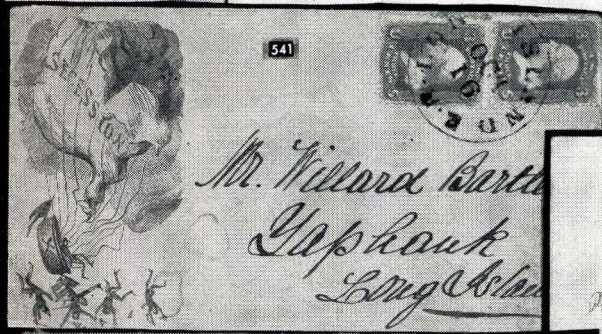 541
SECESSION
Mr. Willard Bartle
Yaphank
Long Islan